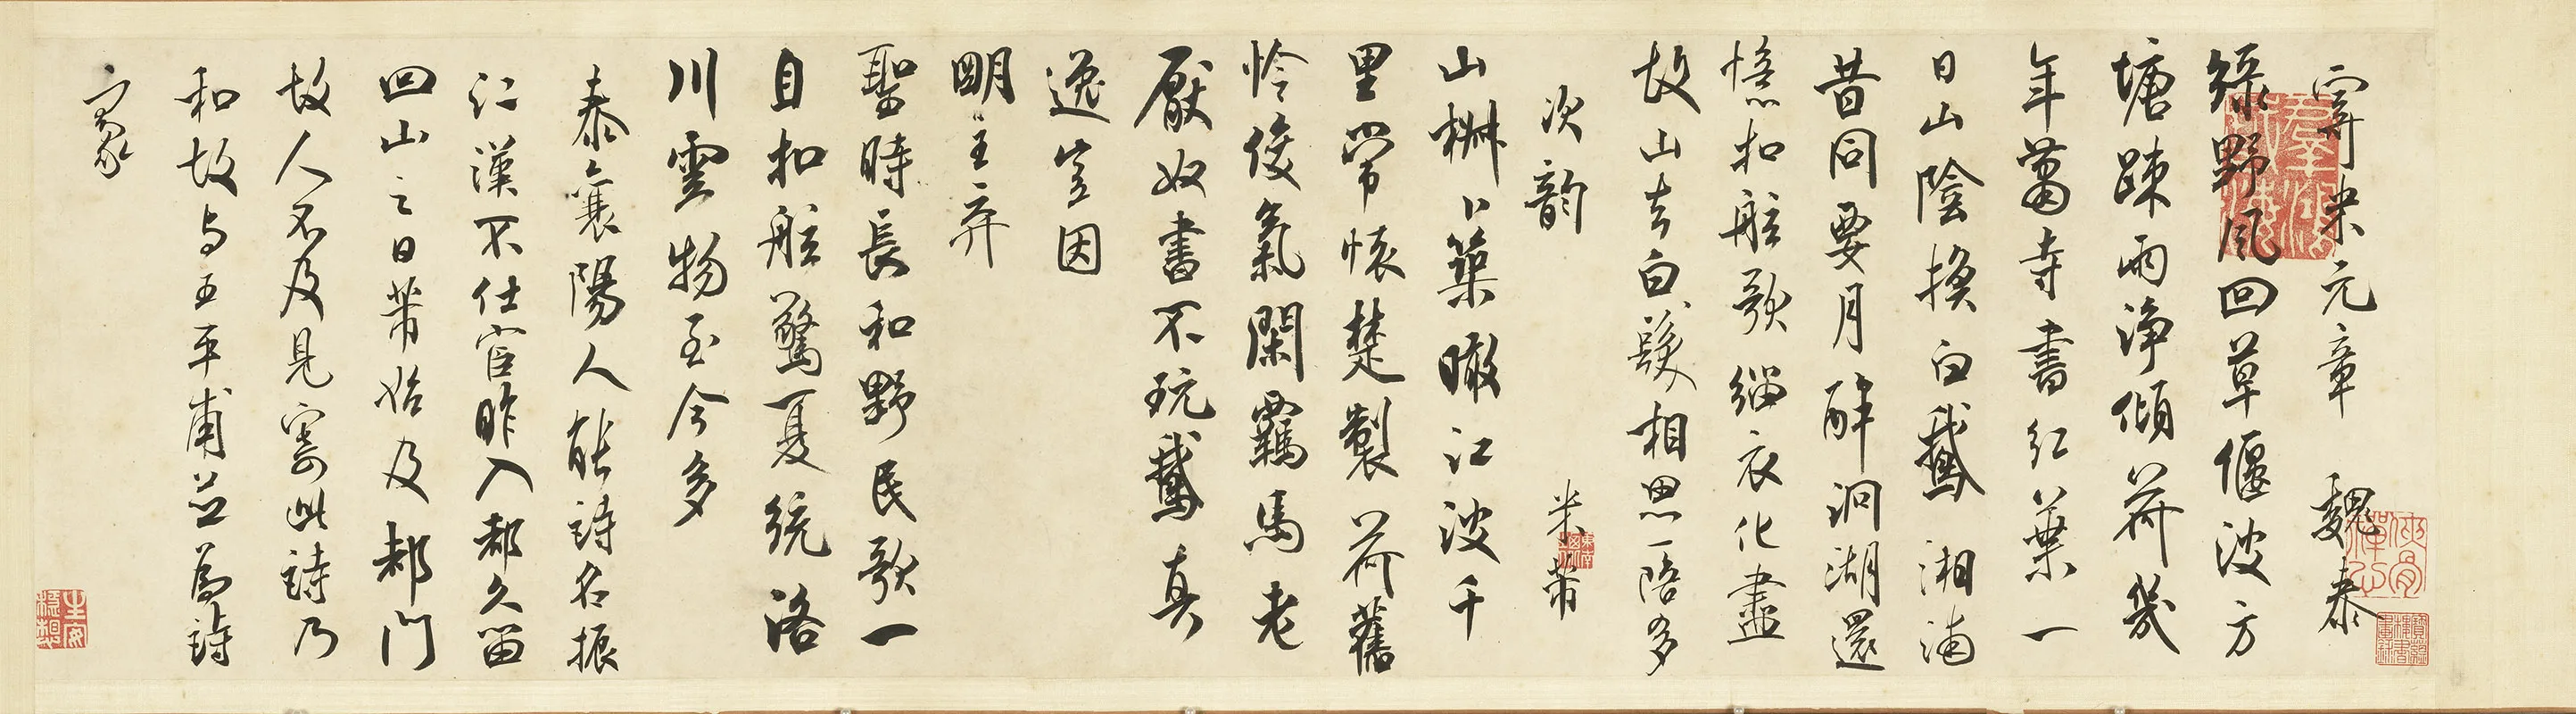 寄米元章 魏泰
綠野風回草偃波方
塘疎雨淨傾荷幾
年蕭寺書紅葉一
日山陰換白鵝湘浦
昔同要月醉洞湖還
憶扣舷歌緇衣化盡
故山去白髮相思一陪多
次韻 米芾
山椒卜築瞰江波千
里常懷楚製荷舊
怜俊氣閑羈馬老
厭奴書不玩鵝真
逸豈因
明主棄
聖時長和野民歌一
自扣舷驚夏統洛
川雲物至今多
泰襄陽人能詩名振
江漢不仕宦昨入都久留
回山之日芾始及都門
故人不及見寄此詩乃
和故与王平甫並為詩
豪